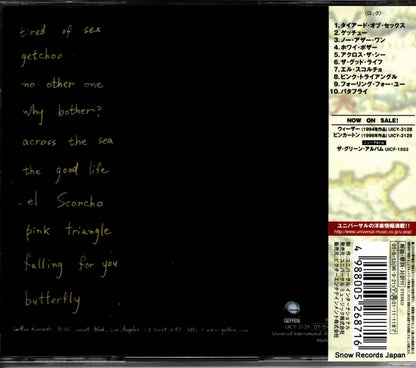 tired of sex
getchoo
no other one
why bother?
across the sea
the good life
el Scorcho
pink triangle
falling for you
butterfly
GEFFEN
UICY-3129
Universal International
〈ロック〉
1.タイアード・オブ・セックス
2.ゲッチュー
3.ノー・アザー・ワン
4.ホワイ・ボザー
5.アクロス・ザ・シー
6.ザ・グッド・ライフ
7.エル・スコルチョ
8.ピンク・トライアングル
9.フォーリング・フォー・ユー
10.バタフライ
NOW ON SALE!
ウィーザー(1994年作品) UICY-3128
ピンカートン(1996年作品) UICY-3129
ザ・グリーン・アルバム UICF-1003
ユニバーサルの洋楽情報満載!!
http://www.universal-music.co.jp/u-pop/
STEREO
4 988005 268716
Snow Records Japan